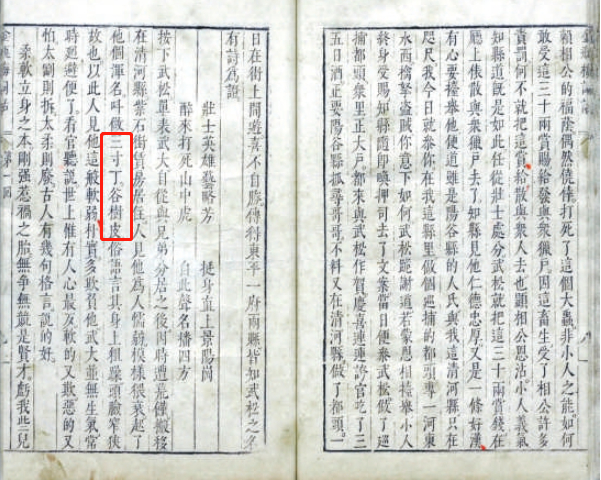 賴相公的福蔭偶然僥倖打死了這個大蟲非小人之能如何
敢受這三十兩賞賜給發與衆獵户因這畜生受了相公許多
責罰何不就把這賞給散與衆人去也顯相公恩沾小人義氣
知縣道既是如此任從壯士處分武松就把這三十兩賞錢在
廳上俵散與衆獵户去了知縣見他仁德忠厚又是一條好漢
有心要擡舉他便道雖是陽谷縣的人氏與我這清河縣只在
咫尺我今日就參你在我這縣里做個巡捕的都頭專一河東
水西擒拏盜賊你意下如何武松跪謝道若蒙恩相擡舉小人
終身受賜知縣隨即喚押司立了文案當日便參武松做了巡
捕都頭衆里正大户都來與武松作賀慶喜連連誇官吃了三
五日酒正要陽谷縣抓尋哥哥不料又在清河縣做了都頭一
日在街上閒遊喜不自勝傳得東平一府兩縣皆知武松之名
有詩爲證
壯士英雄藝略芳 挺身直上景陽岡
醉來打死山中虎 自此聲名播四方
按下武松單表武大自從與兄弟分居之後因時遭荒饉搬移
在清河縣紫石街賃房居住人見他爲人懦弱模樣猥衰起了
他個渾名叫做三寸丁谷樹皮俗語言其身上粗躁頭臉窄狹
故也以此人見他這般軟弱朴實多欺負他武大並無生氣常
時廻避便了看官聽說世上惟有人心最歹軟的又欺惡的又
怕太剛則折太柔則廢古人有幾句格言説的好
柔軟立身之本剛强惹禍之胎無爭無競是賢才虧我些兒